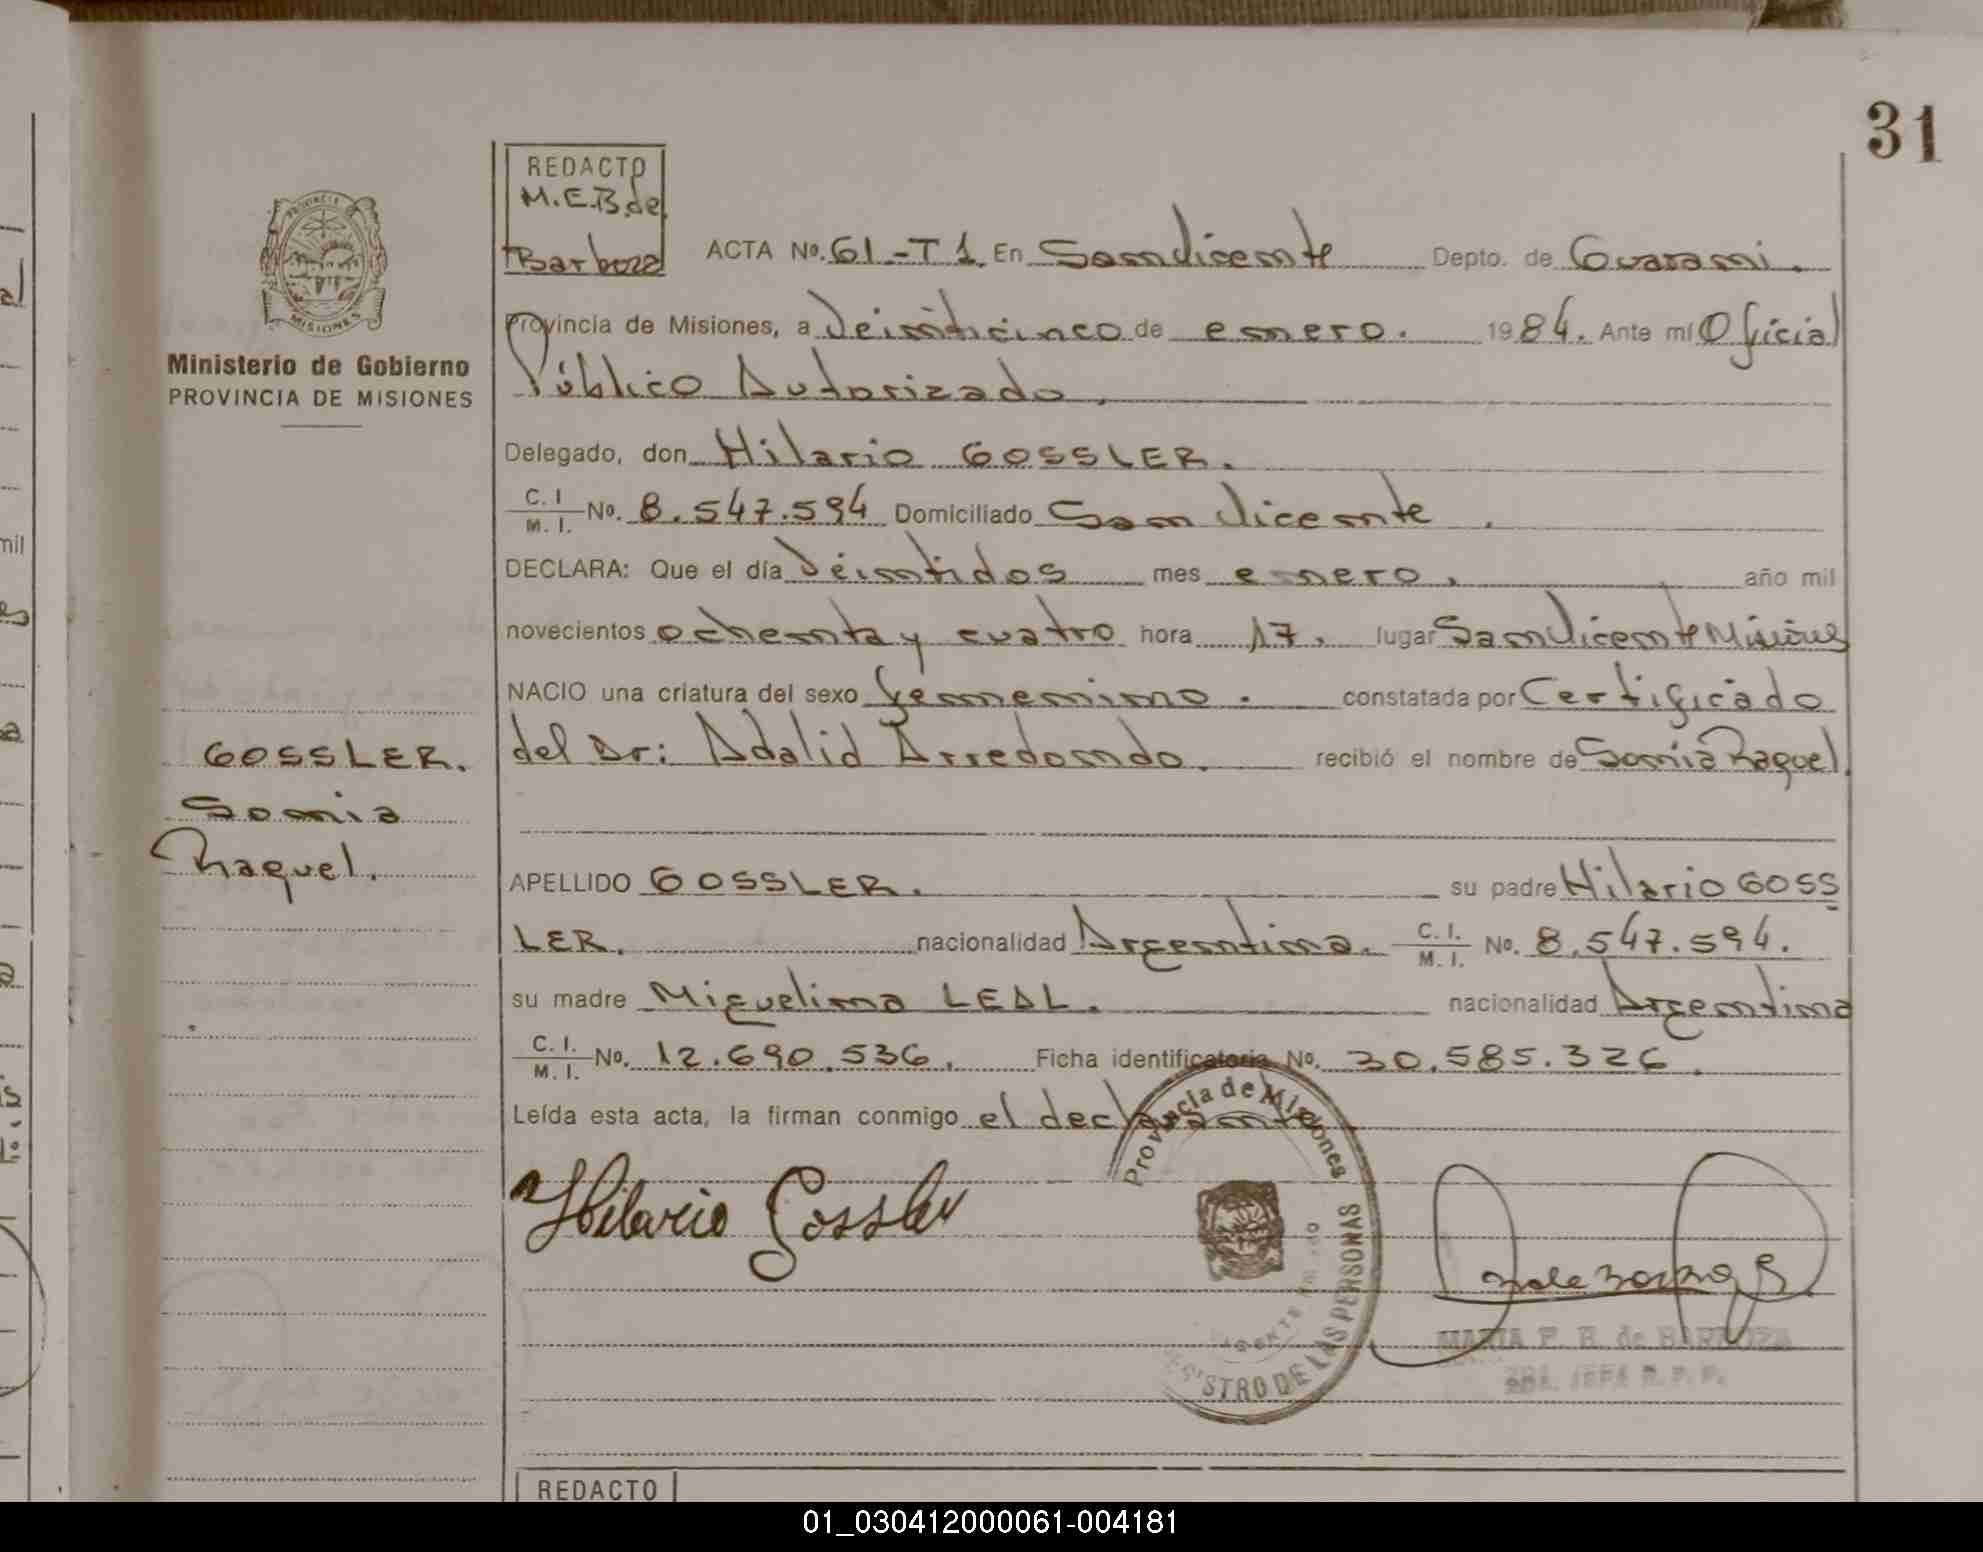 31
REDACTO
M.E.B.de
Barboza
PROVINCIA
MISIONES
Ministerio de Gobierno
PROVINCIA DE MISIONES
ACTA No. 61-T1. En San Vicente Depto. de Guarani.
Provincia de Misiones, a Veinticinco de enero. 1984. Ante mí Oficial
Público Autorizado.
Delegado, don Hilario GOSSLER.
C.I. / M.I. No. 8.547.594 Domiciliado San Vicente.
DECLARA: Que el día Veintidos mes enero. año mil
novecientos ochenta y cuatro hora 17. lugar San Vicente Misiones
NACIO una criatura del sexo femenino. constatada por Certificado
del Dr: Adalid Arredondo. recibió el nombre de Sonia Raquel.
GOSSLER.
Sonia
Raquel.
APELLIDO GOSSLER. su padre Hilario GOSS
LER. nacionalidad Argentina. C.I. / M.I. No. 8.547.594.
su madre Miguelina LEAL. nacionalidad Argentina
C.I. / M.I. No. 12.690.536. Ficha identificatoria No. 30.585.326.
Leída esta acta, la firman conmigo el declarante.
Hilario Gossler
Provincia de Misiones
REGISTRO DE LAS PERSONAS
MARIA E. B. de BARBOZA
REDACTO
01_030412000061-004181